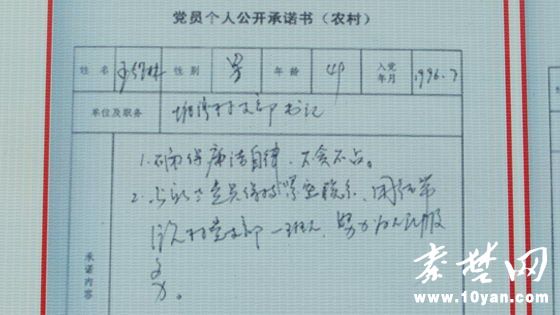 党员个人公开承诺书（农村）
姓名 性别 男 年龄 49 入党年月 1996.7
单位及职务 村支部书记
承诺内容
1. 确保廉洁自律、不贪不占。
2. 与 党员保持紧密联系、团结带
领村党支部一班人、努力为人民服
务。
秦楚网
www.10yan.com